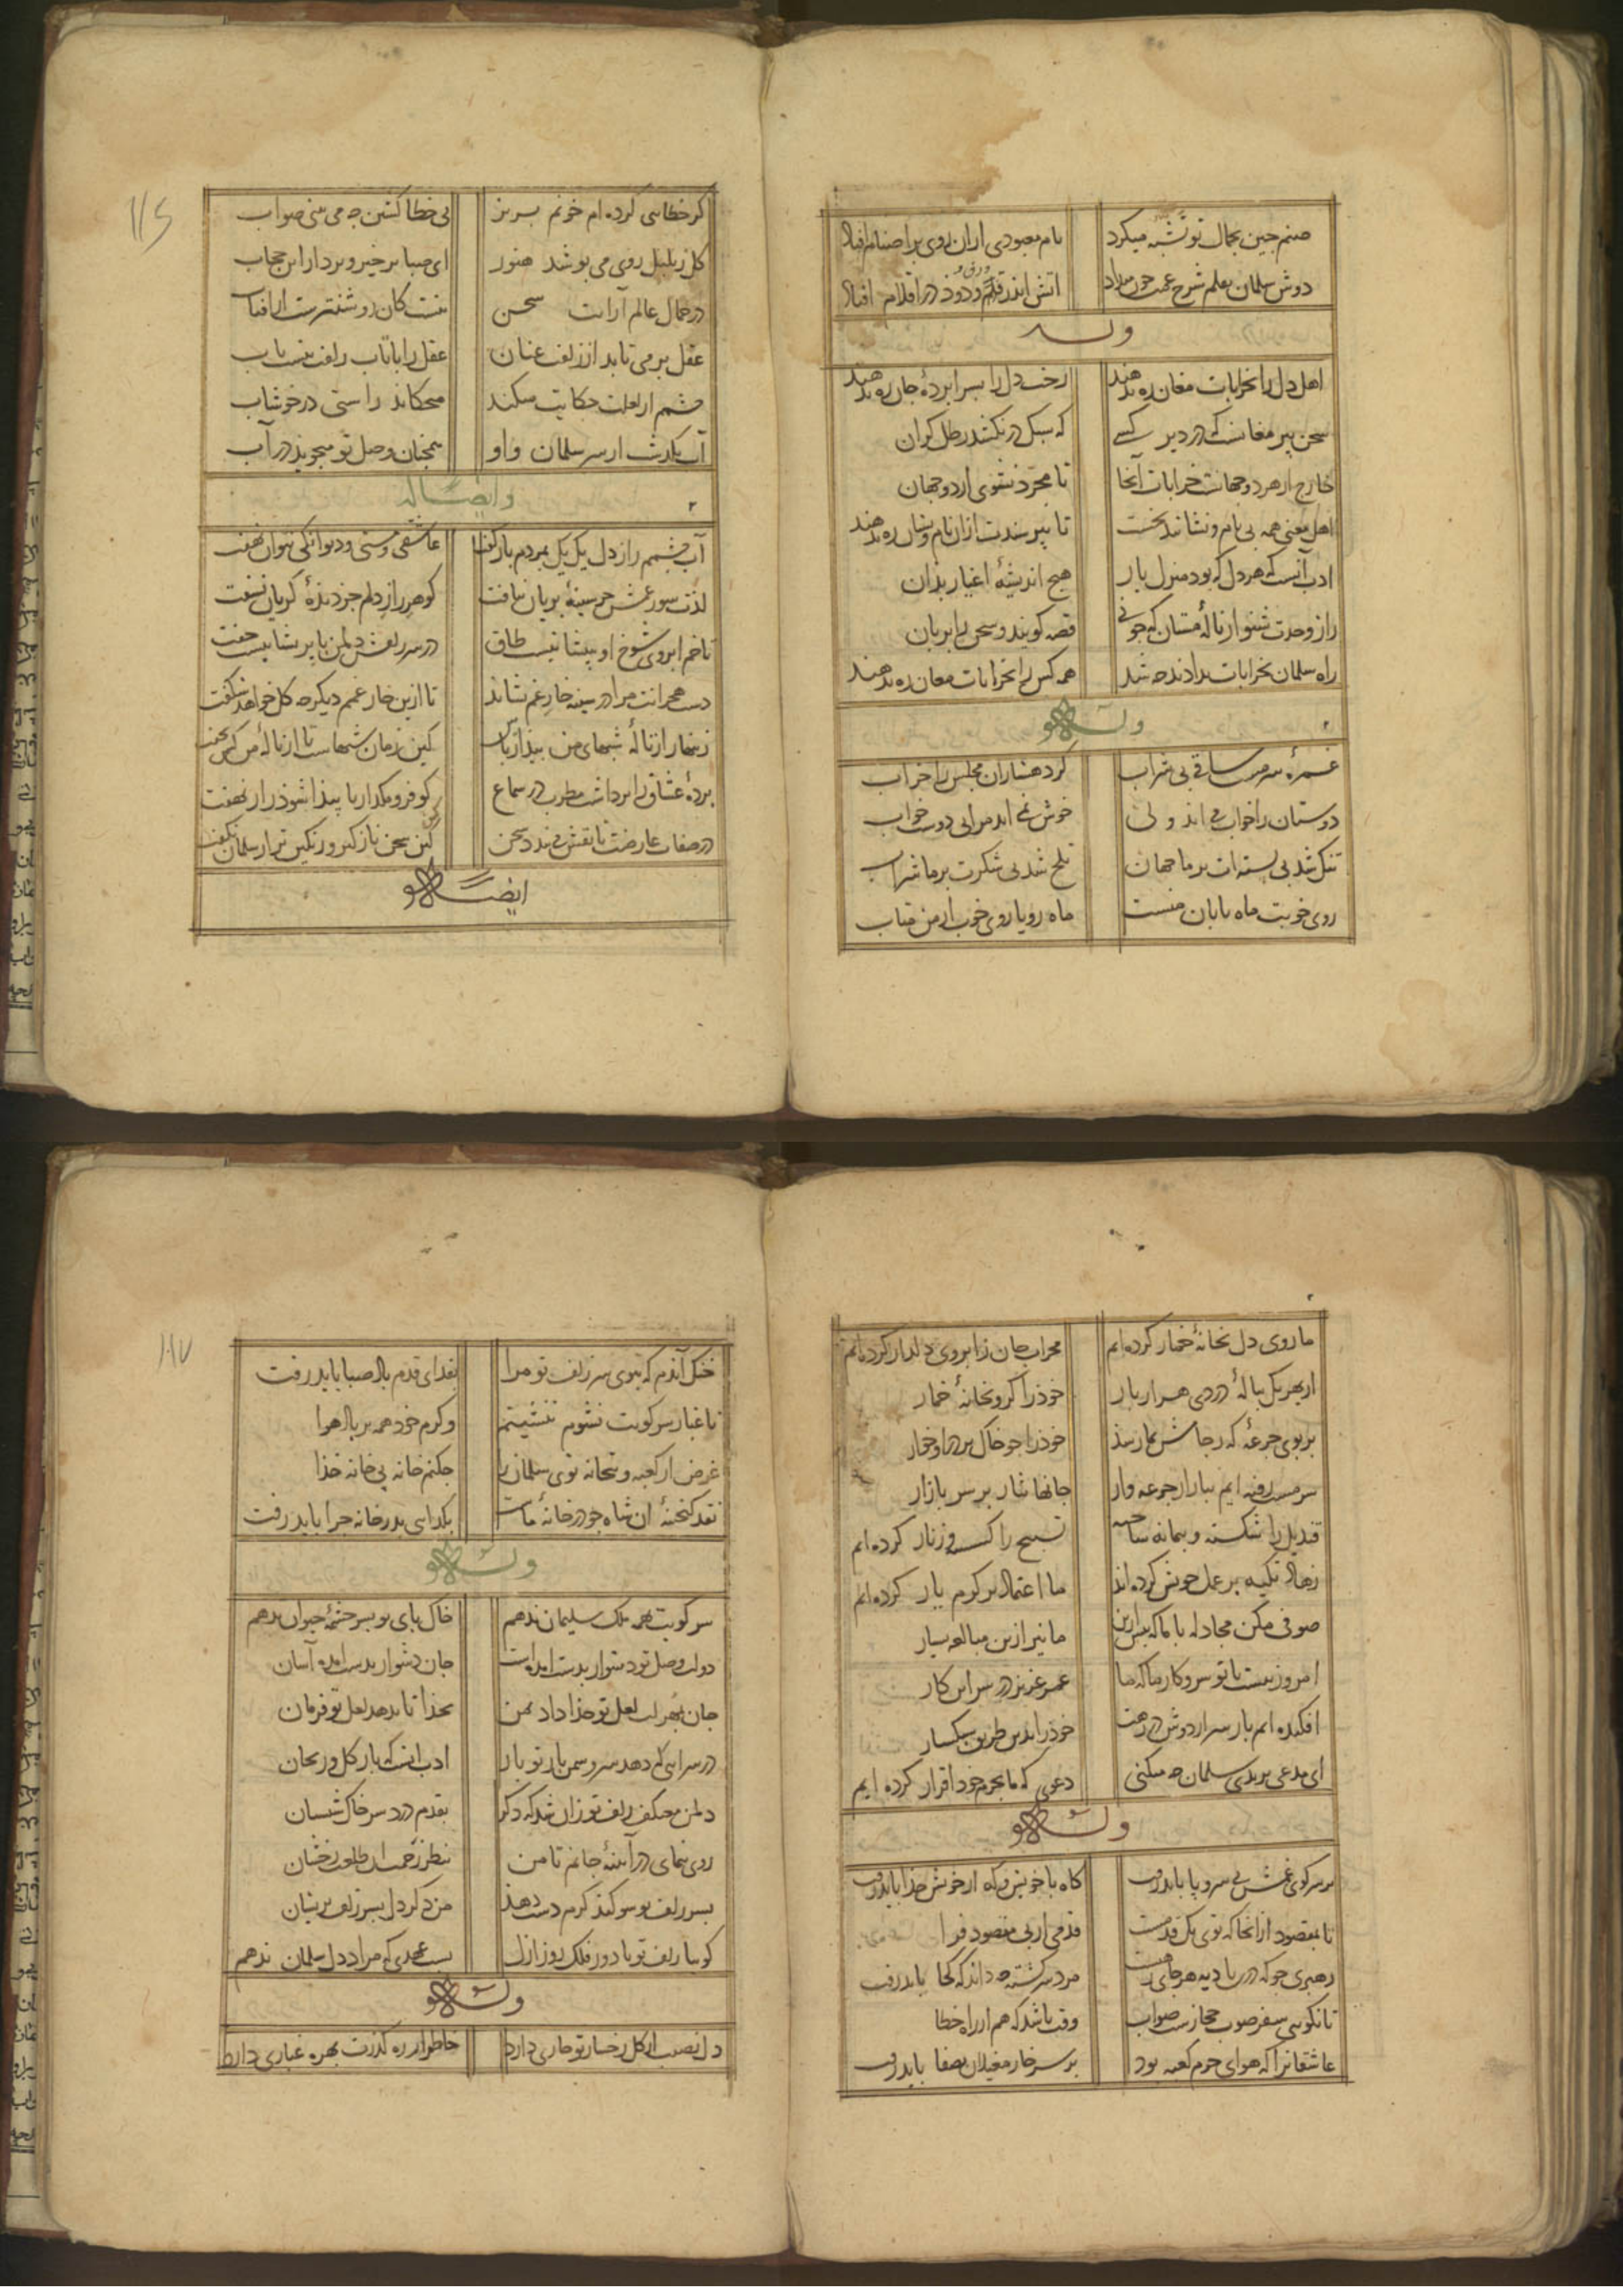 صنم چین بجمال تو تشبه میکرد نام معبودی ازان روی بر اصنام افتاد
دوش سلمان بقلم شرح غمت میداد آتش اندر قلم و دود در اقلام افتاد
وله
اهل دل را بخرابات مغان ره ندهند رخت دل را بسراپرده جان ره ندهند
سخن پیر مغانست که در دیر کسی که سبک در نکشد رطل کران
خارج از هر دو جهانست خرابات آنجا تا مجرد نشوی از دو جهان
اهل معنی همه بی نام و نشانند نخست تا نپرسندت ازان نام و نشان ره ندهند
ادب آنست که هر دل که بود منزل یار هیچ اندیشهٔ اغیار بدان
راز وحدت شنو از نالهٔ مستان که قصه کویند و سخن را بزبان
راه سلمان بخرابات بدادند چه شد همه کس را بخرابات مغان ره ندهند
وله
غمزهٔ سرمست ساقی بی شراب کرد هشیاران مجلس را خراب
دوستان را خواب می آید ولی خوش نمی آید مرا بی دوست خواب
تنک شد بی پسته ات بر ما جهان تلخ شد بی شکرت بر ما شراب
روی خوبت ماه تابان منست ماه رویا روی خوب از من متاب
۱۱۶
کر خطایی کرده ام خونم بریز بی خطا کشتن چه می بینی صواب
کل ز بلبل روی می پوشد هنوز ای صبا برخیز و بردار این حجاب
در جمال عالم آرایت سخن نیست کان روشنترست از آفتاب
عقل برمی تابد از زلفت عنان عقل را با تاب زلفت نیست تاب
چشمم از لعلت حکایت میکند میچکاند راستی در خوشاب
آب بکذشت از سر سلمان و او همچنان وصل تو میجوید در آب
وایضاله
آب چشمم راز دل یک یک بمردم باز کفت عاشقی و مستی و دیوانکی نتوان نهفت
لذت سوز عشق جز سینهٔ بریان نیافت کوهر راز دلم جز دیدهٔ کریان نسفت
تا خم ابروی شوخ او بپیشانیست طاق در سر زلفش دلم با پریشانیست جفت
دست هجرانت مرا در سینه خار غم نشاند تا ازین خار غمم دیکر چه کل خواهد شکفت
زینهار از نالهٔ شبهای من بیدار باش کین زمان شبهاست تا از نالهٔ من کس نخفت
پردهٔ عشاق را برداشت مطرب در سماع کو فرو مکذار تا پیدا شود راز نهفت
در صفات عارضت تا نقش می بندد سخن کس سخن نازکتر و رنکین تر از سلمان نکفت
ایضاله
ما روی دل بخانهٔ خمار کرده ایم محراب جان ز ابروی دلدار کرده ایم
از بهر یک پیالهٔ دردی هزار بار خود را کرو بخانهٔ خمار
بر بوی جرعهٔ که ز جامش بما رسد خود را چو خاک بر در او خوار
سرمست رفته ایم ببازار جرعه وار جانها نثار بر سر بازار
قندیل را شکسته و پیمانه ساخته تسبیح را کسسته و زنار کرده ایم
زهاد تکیه بر عمل خویش کرده اند ما اعتماد بر کرم یار کرده ایم
صوفی مکن مجادله با ما که پیش ازین ما نیز ازین مبالغه بسیار
امروز نیست با تو سر و کار ما که ما عمر عزیز در سر این کار
افکنده ایم بار سر از دوش در رهت خود را بدین طریق سبکسار
ای مدعی بر بدی سلمان چه میکنی دعوی که ما بجرم خود اقرار کرده ایم
وله
بر سر کوی غمش بی سر و پا باید رفت کاه با خویش و که از خویش جدا باید رفت
تا بمقصود از انجا که توی یک قدمست قدمی از پی مقصود فرا
رهبری جو که درین بادیه هر جای رهست مرد سرکشته چه داند که کجا باید رفت
تا نکویی سفر صوب حجازست صواب وقت باشد که هم از راه خطا
عاشقانرا که هوای حرم کعبه بود بر سر خار مغیلان بصفا باید رفت
۱۱۷
خنک آندم که ببوی سر زلف تو مرا بفدای قدم باد صبا باید رفت
تا غبار سر کویت نشوم ننشینم وکرم خود همه بر باد هوا
غرض از کعبه و بتخانه توی سلمان را چکنم خانه پی خانه خدا
نقد کنجینهٔ آن شاه چو در خانهٔ ماست بکدایی بدر خانه چرا باید رفت
وله
سر کویت همه ملک سلیمان ندهم خاک پای تو بسرچشمهٔ حیوان ندهم
دولت وصل تو دشوار بدست آمده است جان دشوار بدست آمده آسان
جان بهر لب لعل تو خدا داد بمن بخدا تا ندهد لعل تو فرمان
در سرایی که دهد سرو سمن بار تو بار ادب آنست که بار کل و ریحان
دل من معتکف زلف تو زان شد که دکر بقدم درد سر خاک نشینان
روی بنمای در آیینهٔ جانم تا من
بسر زلف تو سوکند کرم دست دهد من دکر دل بسر زلف پریشان
کوییا زلف تو با دور فلک روز ازل بست عهدی که مراد دل سلمان ندهم
وله
دل نصیب از کل رخسار تو خاری دارد خاطر از ره کذرت بهره غباری دارد